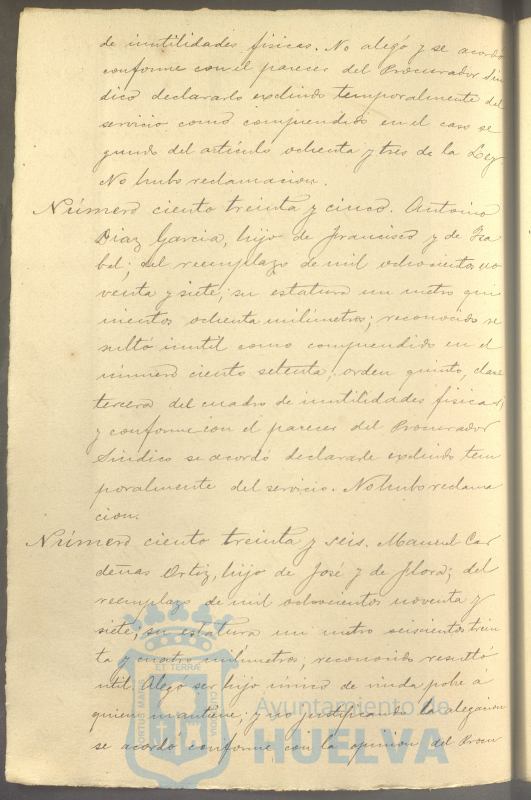 de inutilidades fisicas. No alegó y se acordó
conforme con el parecer del Procurador Sin
dico declararlo excluido temporalmente del
servicio como comprendido en el caso se
gundo del articulo ochenta y tres de la Ley
No hubo reclamacion.
Número ciento treinta y cinco. Antonio
Diaz Garcia, hijo de Francisco y de Isa
bel; del reemplazo de mil ochocientos no
venta y siete; su estatura un metro qui
nientos ochenta milimetros; reconocido re
sultó inutil como comprendido en el
número ciento setenta, orden quinto, clase
tercera del cuadro de inutilidades fisicas;
y conforme con el parecer del Procurador
Sindico se acordó declararle excluido tem
poralmente del servicio. No hubo reclama
cion.
Número ciento treinta y seis. Manuel Car
deñas Ortiz, hijo de José y de Flora; del
reemplazo de mil ochocientos noventa y
siete; su estatura un metro seiscientos trein
ta y cuatro milimetros; reconocido resultó
util. Alegó ser hijo único de viuda pobre a
quien mantiene; y no justificando la alegacion
se acordó conforme con la opinion del Procu
PORTUS MARIS ET TERRÆ CUSTODIA
Ayuntamiento de
HUELVA